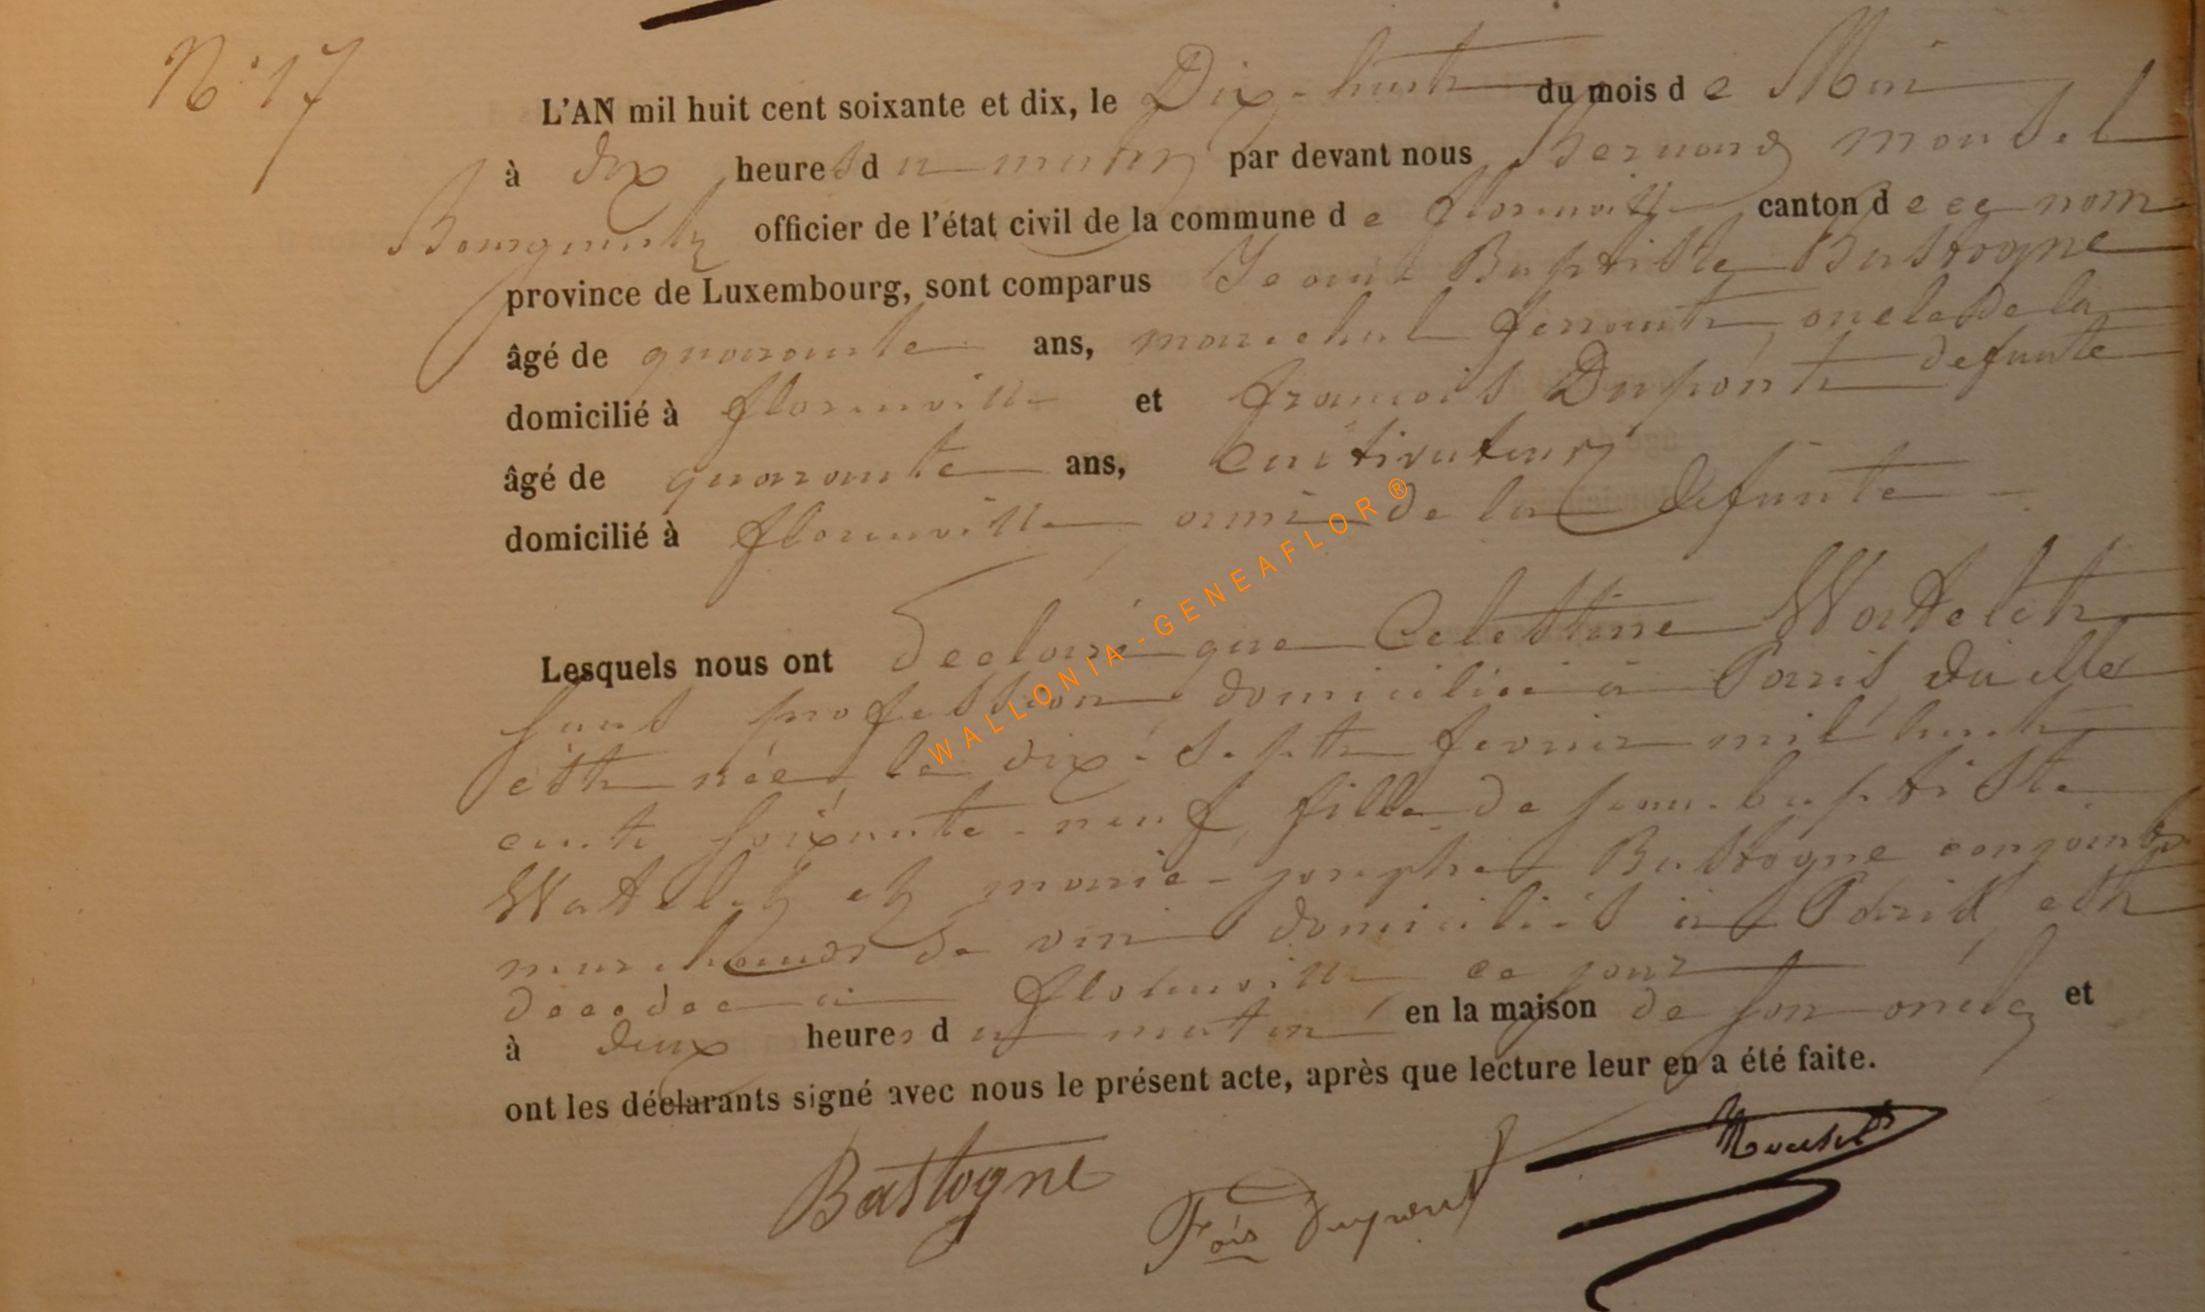 N° 17
L'AN mil huit cent soixante et dix, le Dix-huit du mois d e Mai
à dix heures d u matin par devant nous Bernard Mousel
Bourgmestre officier de l'état civil de la commune d e florenville canton d e ce nom
province de Luxembourg, sont comparus Jean Baptiste Bastogne
âgé de quarante ans, marechal ferrant, oncle de la
defunte
domicilié à florenville et françois Dupont
âgé de quarante ans, Cultivateur
domicilié à florenville, ami de la defunte
Lesquels nous ont declaré que Celestine Wattelet
sans profession domiciliée à Paris, où elle
est née, le dix-sept fevrier mil huit
cent soixante-neuf, fille de jean-baptiste
Wattelet et marie-josephe Bastogne conjoints
marchands de vin domiciliés à Paris, est
decedee à florenville ce jour
à deux heures d u matin en la maison de son oncle et
ont les déclarants signé avec nous le présent acte, après que lecture leur en a été faite.
Bastogne
Fois Dupont
Mousel
WALLONIA-GENEAFLOR®